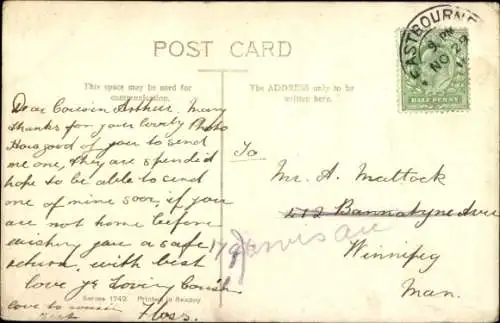 POST CARD
This space may be used for
communication.
The ADDRESS only to be
written here.
EASTBOURNE
9 PM
NO 29
HALF PENNY
Dear Cousin Arthur, Many
thanks for your lovely Photo
How good of you to send
me one, they are spendid
hope to be able to send
one of mine soon, if you
are not home before
wishing you a safe
return, with best
love yr Loving Cousin
Floss.
love to cousin
To
Mr. A. Mattock
572 Bannatyne Ave
Jarvis ave
Winnipeg
Man.
Series 1742. Printed in Saxony